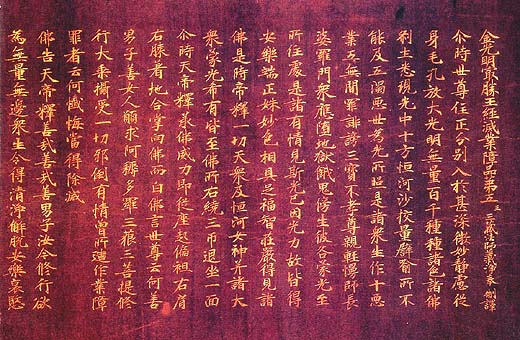 金光明最勝王經滅業障品第五 三藏法師義淨奉 制譯
尒時世尊住正分別入於甚深微妙靜慮從
身毛孔放大光明無量百千種種諸色諸佛
刹土悉現光中十方恒河沙校量譬喻所不
能及五濁惡世為光所照是諸衆生作十惡
業五無間罪誹謗三寶不孝尊親輕慢師長
婆羅門衆應墮地獄餓鬼傍生彼各蒙光至
所住處是諸有情見斯光已因光力故皆得
安樂端正姝妙色相具足福智莊嚴得見諸
佛是時帝釋一切天衆及恒河女神并諸大
衆蒙光希有皆至佛所右繞三帀退坐一面
尒時天帝釋承佛威力即從座起偏袒右肩
右膝著地合掌向佛而白佛言世尊云何善
男子善女人願求阿耨多羅三藐三菩提修
行大乘攝受一切邪倒有情曾所造作業障
罪者云何懺悔當得除滅
佛告天帝釋善哉善哉善男子汝今修行欲
為無量無邊衆生令得清淨解脫安樂哀愍